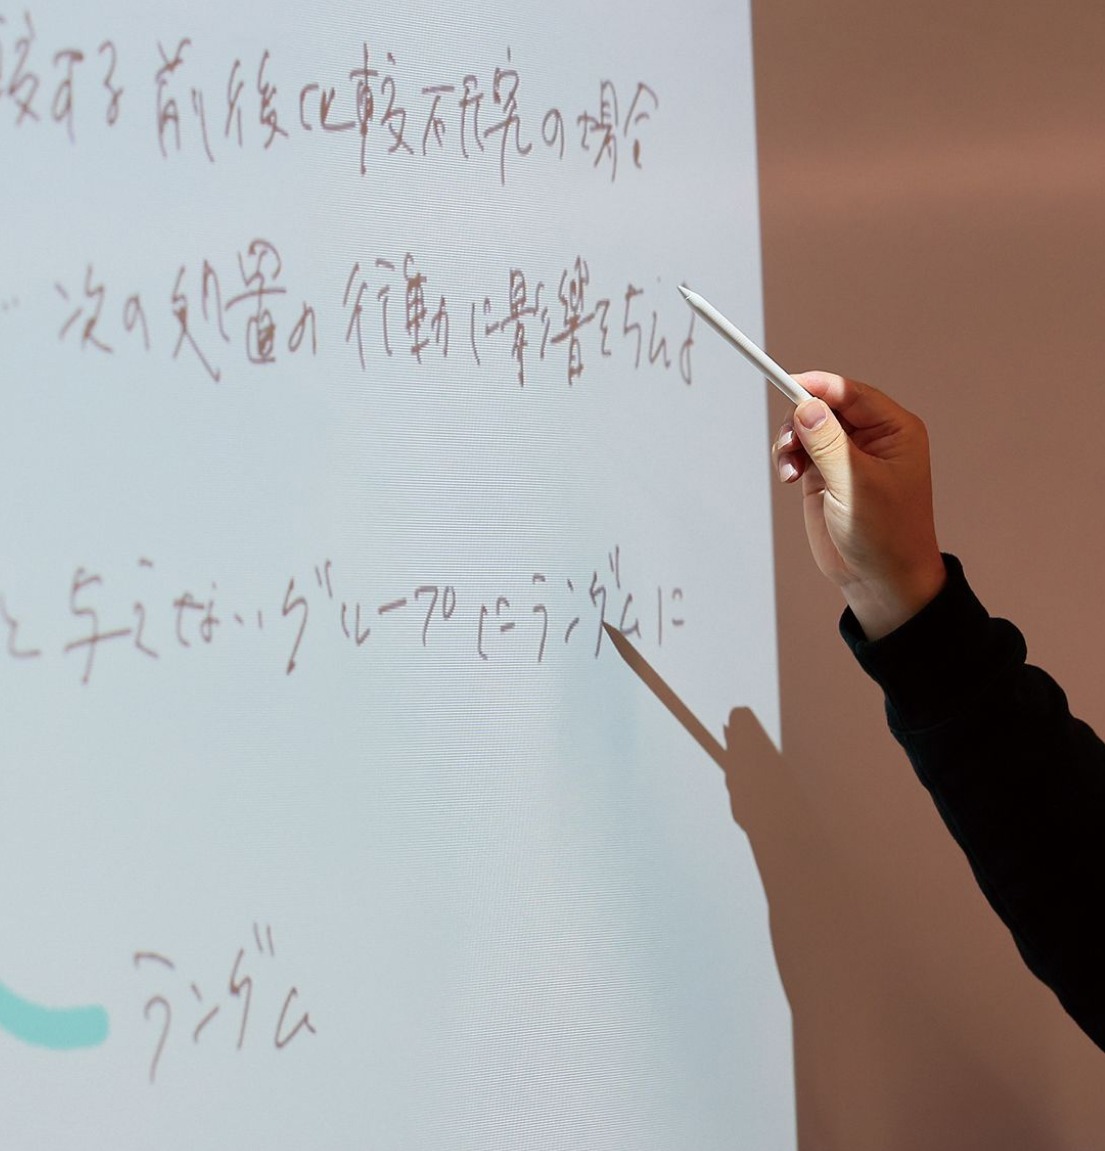 する前後比較研究の場合
次の処置の行動に影響を与
と与えないグループにランダムに
ランダム